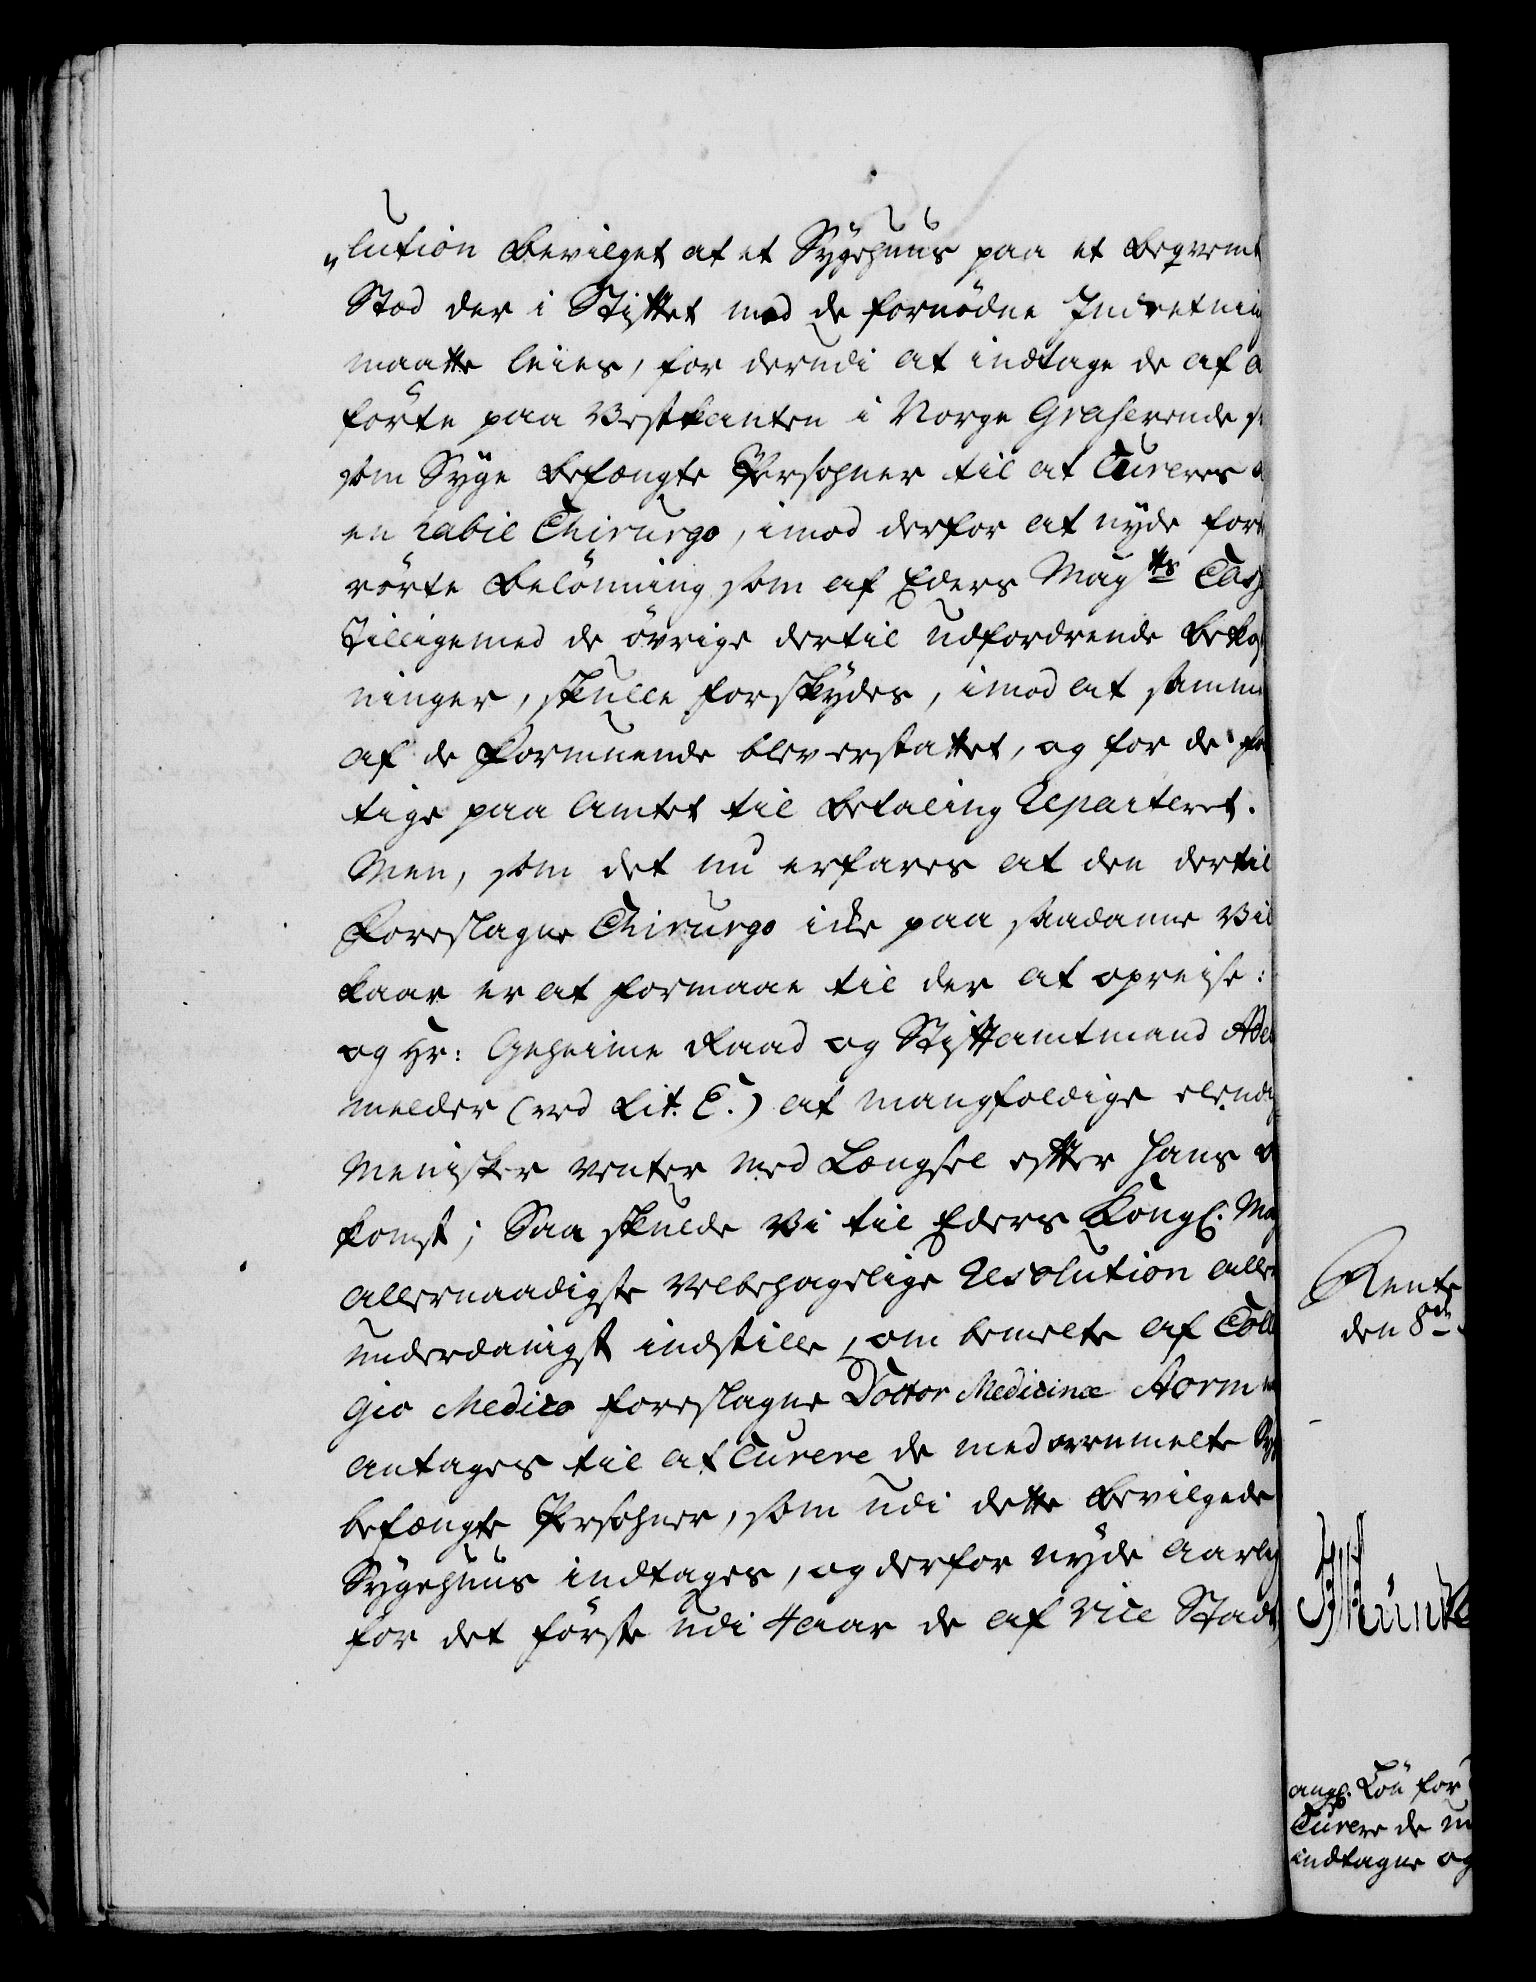 „lution bevilget at et Sygehuus paa et beqvemt
Stod der i Stiftet med de fornødne Indretning
maatte leies, for derudi at indtage de af
førte paa Vestkanten i Norge Graserende
som Syge befængte Persohner til at Cureres
en habil Chirurgo, imod derfor at nyde
rørte Belønning som af Eders Maytts
Tilligemed de øvrige dertil udfordrende
ninger, skulle forskydes, imod at samme
af de Formuende blev erstattet, og for de
tige paa Amtet til Betaling Reparteret.
Men, som det nu erfares at den dertil
Foreslagne Chirurgo icke paa saadanne Vil
kaar er at formaae til der at opreise:
og Hr: Geheime Raad og Stiftamtmand
melder (ved Lit. E.) at mangfoldige elendi
Menisker venter med Længsel efter hans
komst; Saa skulde Vi til Eders Kongl. May
allernaadigste velbehagelige Resolution aller
underdanigst indstille, om bemelte af Colle
gio Medico foreslagne Doctor Medicinæ
antages til at Curere de med ovenmelte
befængte Persohner, som udi dette bevilgede
Sygehuus indtages, og derfor nyde aarlig
for det første udi 4 aar de af Vice Stadt
Rente
den 8de
angl. Løn for
Curere de
indtagne og